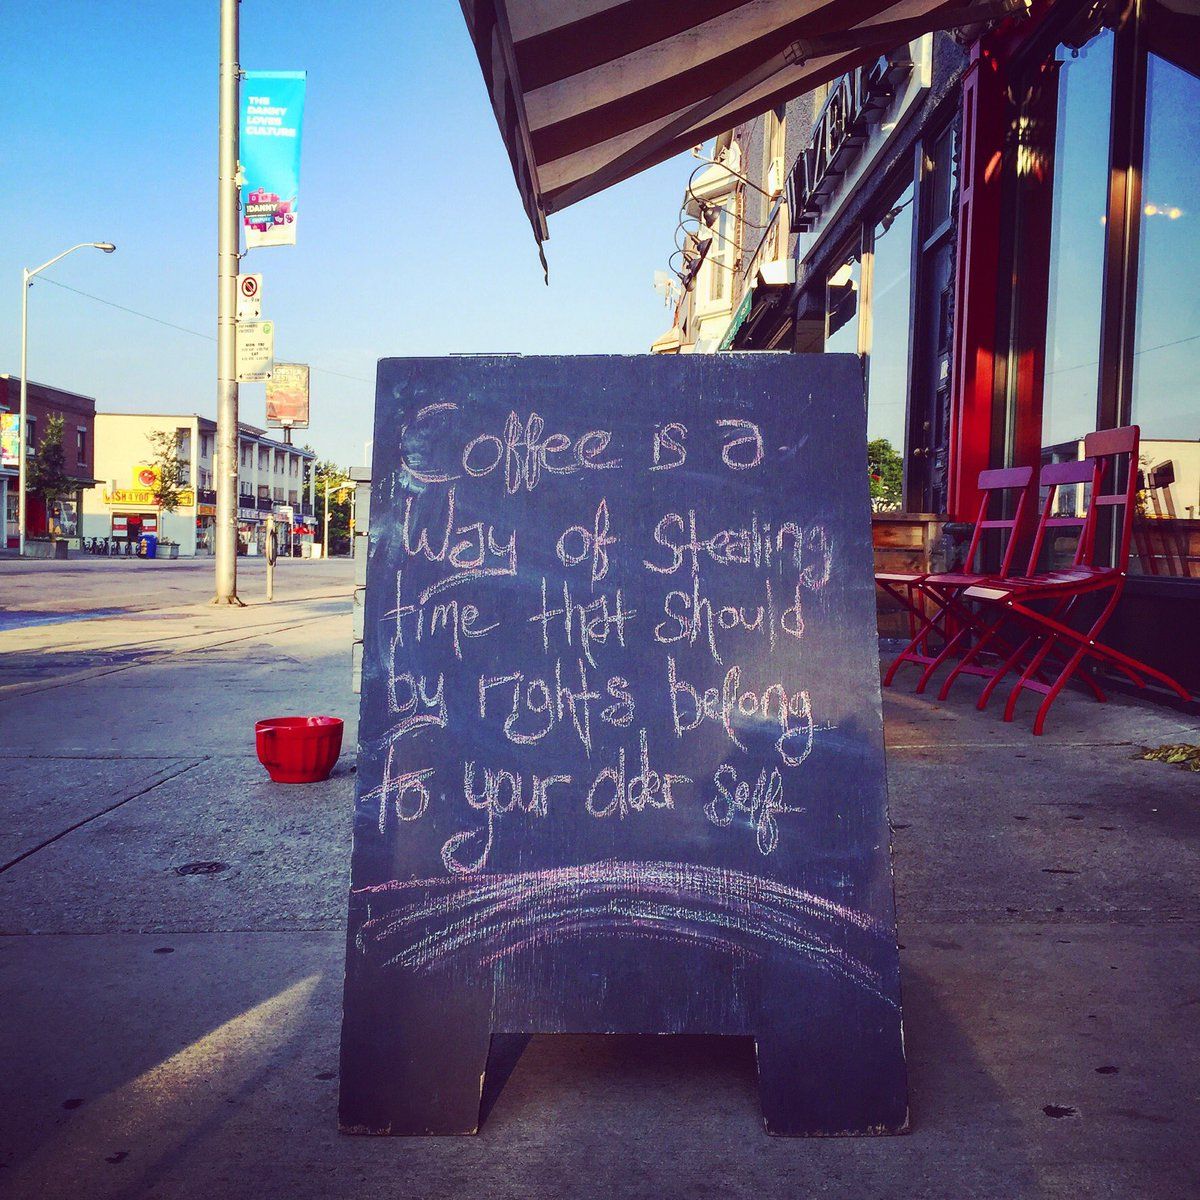 THE
DANNY
LOVES
CULTURE
THE DANNY
Coffee is a
Way of Stealing
time that should
by rights belong
To your older self